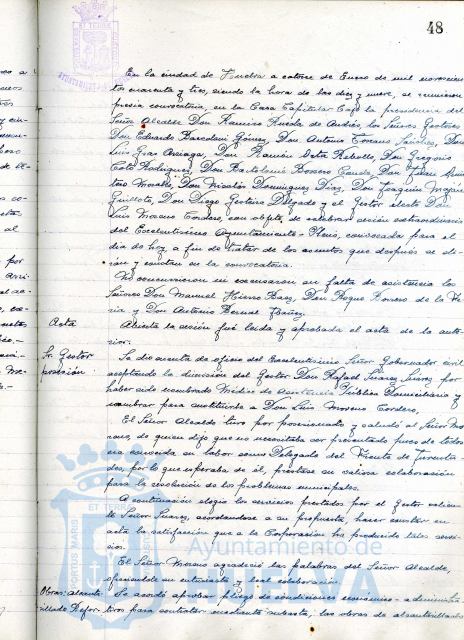 48
En la ciudad de Huelva a catorce de Enero de mil novecien-
tos cuarenta y tres, siendo la hora de las diez y nueve, se reunieron
previa convocatoria, en la Casa Capitular bajo la presidencia del
Señor Alcalde Don Ramiro de Andrés, los Señores Gestores
Don Eduardo Gómez, Don Antonio Sánchez, Don
Luis Arriaga, Don Ramón Rebollo, Don Gregorio
Rodríguez, Don Bartolomé Romero Don
Morales, Don Nicolás Domínguez Díaz, Don Joaquín
Don Diego Delgado y el Gestor electo Don
Luis Moreno Cordero, con objeto de celebrar sesión extraordinaria
del Excelentísimo Ayuntamiento-Pleno, convocada para el
día de hoy a fin de tratar de los asuntos que después se di-
rán y constan en la convocatoria.
No concurrieron ni excusaron su falta de asistencia los
Señores Don Manuel Hierro Don Roque Romero de la
y Don Antonio Bernal
Acta
Abierta la sesión fué leida y aprobada el acta de la ante-
rior.
Sr. Gestor
posesión
Se dió cuenta de oficio del Excelentísimo Señor Gobernador civil
aceptando la dimisión del Gestor Don Rafael Suárez por
haber sido nombrado Médico de Asistencia Pública Domiciliaria y
nombrar para sustituirle a Don Luis Moreno Cordero.
El Señor Alcalde tuvo por posesionado y saludó al Señor Mo-
reno, de quien dijo que no necesitaba ser presentado pues de todos
era conocida su labor como Delegado del Frente de Juventu-
des, por lo que esperaba de él, prestase su valiosa colaboración
para la resolución de los problemas municipales.
A continuación elogió los servicios prestados por el Gestor saliente
Señor Suárez, acordándose a su propuesta, hacer constar en
acta la satisfacción que a la Corporación ha producido tales servi-
cios.
El Señor Moreno agradeció las palabras del Señor Alcalde,
ofreciendo su entusiasta y leal colaboración.
Obras: alcanta-
rillado
Se acordó aprobar pliego de condiciones económico-administra-
tivas para contratar mediante subasta, las obras de alcantarillado
ET TERRA
PORTUS MARIS
Ayuntamiento de
HUELVA